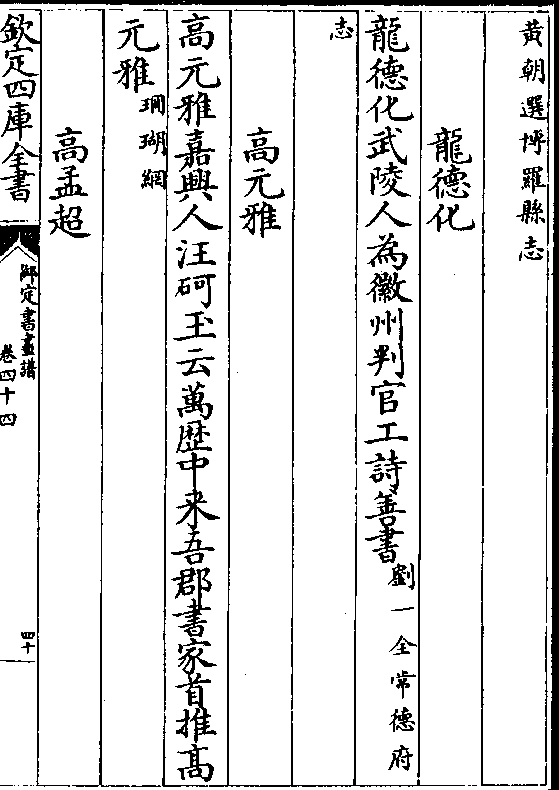 黄朝選博羅縣志
龍德化
龍德化武陵人為徽州判官工詩善書劉一全常德府
志
高元雅
高元雅嘉興人汪砢玉云萬歴中来吾郡書家首推高
元雅珊瑚網
高孟超
欽定四庫全書
御定書畫譜
卷四十四
四十